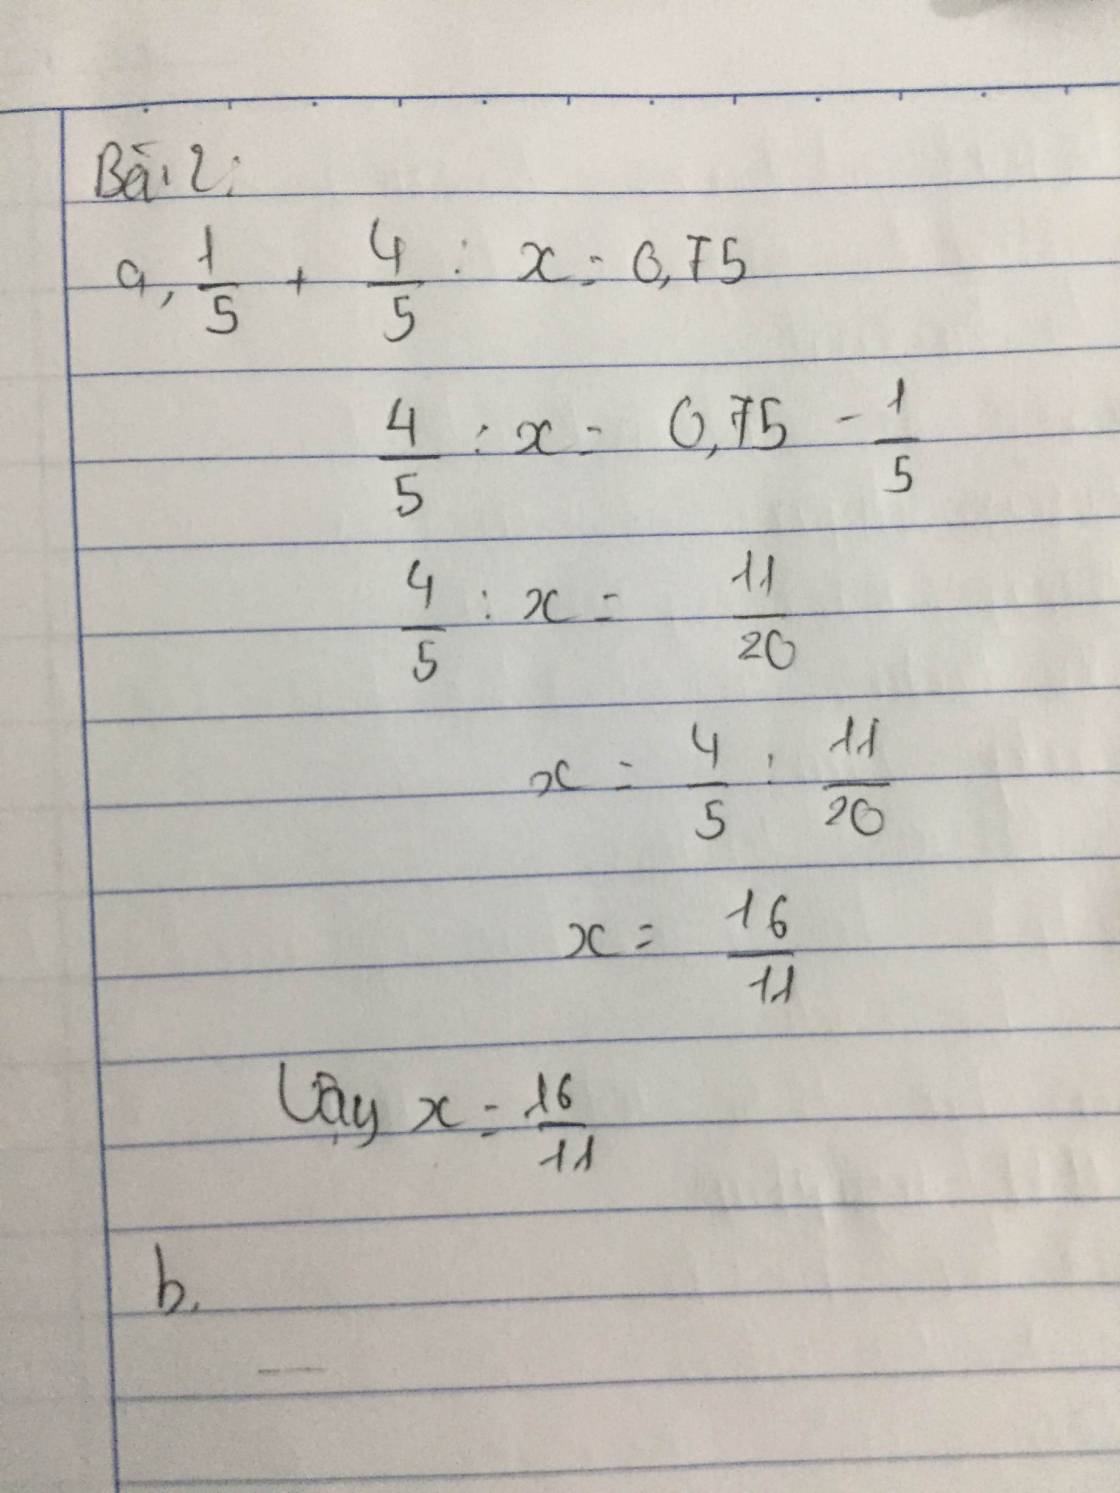 Bài 2:
a, 1/5 + 4/5 : x = 0,75
4/5 : x = 0,75 - 1/5
4/5 : x = 11/20
x = 4/5 : 11/20
x = 16/11
Vậy x = 16/11
b,